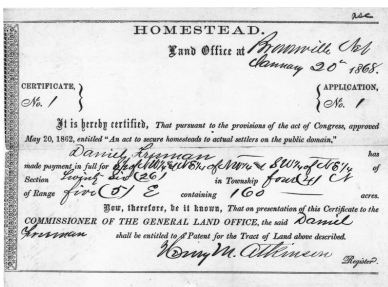 HOMESTEAD.
Land Office at Brownville Neb
January 20th 1868.
CERTIFICATE, No. 1
APPLICATION, No. 1
It is hereby certified, That pursuant to the provisions of the act of Congress, approved
May 20, 1862, entitled "An act to secure homesteads to actual settlers on the public domain,"
Daniel Freeman has
made payment in full for S½ of NW¼ & NE¼ of NW¼ & SW¼ of NE¼ of
Section twenty six (26) in Township four (4) N
of Range five (5) E containing 160 acres.
Now, therefore, be it known, That on presentation of this Certificate to the
COMMISSIONER OF THE GENERAL LAND OFFICE, the said Daniel
Freeman shall be entitled to a Patent for the Tract of Land above described.
Henry M. Atkinson
Register.